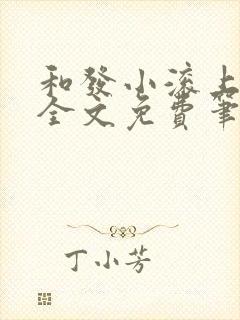 和發小滾上
全文免費筆
丁小芳